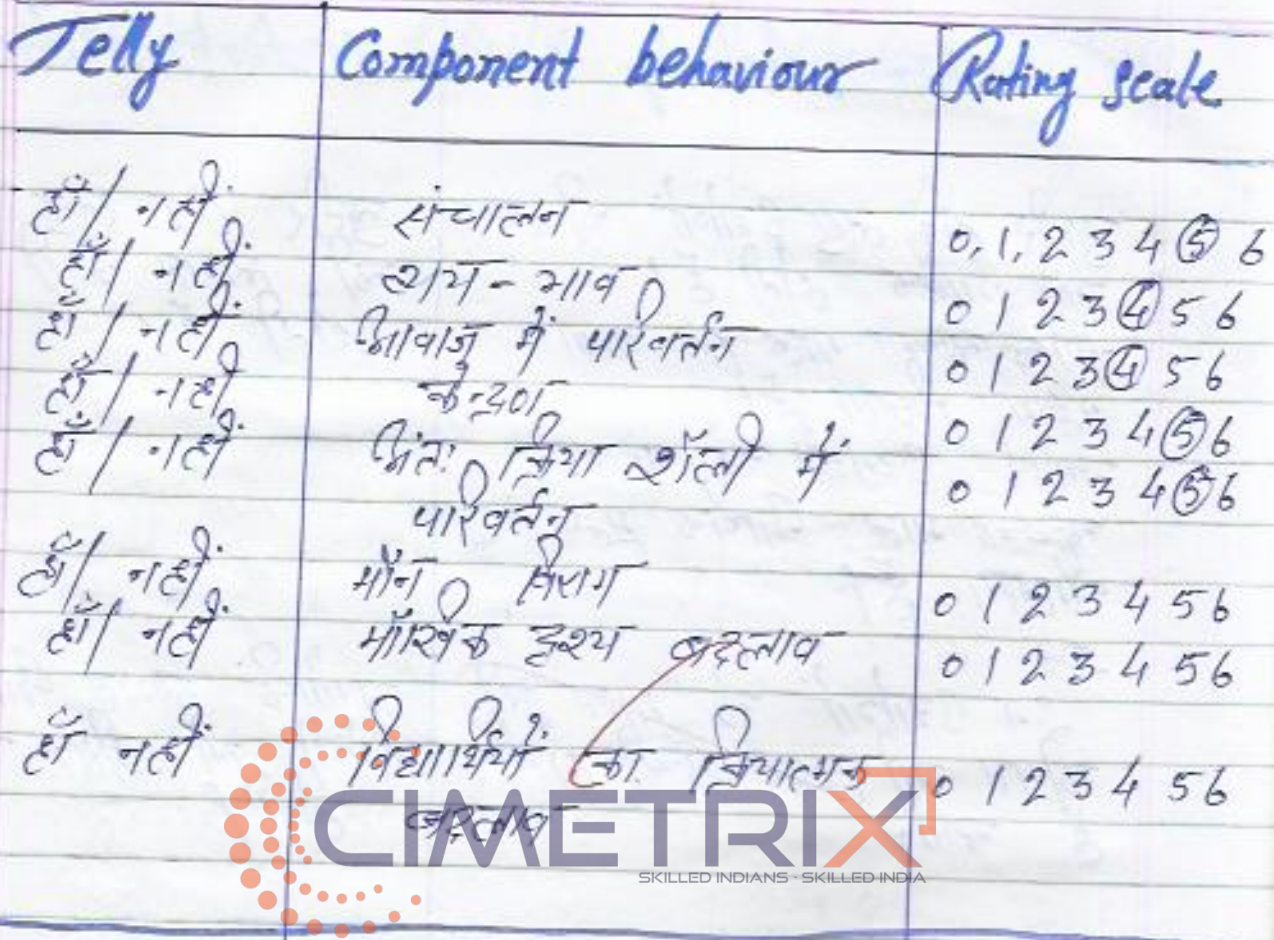 Telly Component behaviour Rating scale
हाँ/ नहीं संचालन 0, 1, 2 3 4 5 6
हाँ/ नहीं हाव - भाव 0 1 2 3 4 5 6
हाँ/ नहीं आवाज में परिवर्तन 0 1 2 3 4 5 6
हाँ/ नहीं केन्द्रण 0 1 2 3 4 5 6
हाँ/ नहीं अंतः क्रिया शैली में 0 1 2 3 4 5 6
परिवर्तन
हाँ/ नहीं मौन विराम 0 1 2 3 4 5 6
हाँ/ नहीं मौखिक दृश्य बदलाव 0 1 2 3 4 5 6
हाँ नहीं विद्यार्थियों का क्रियात्मक 0 1 2 3 4 5 6
बदलाव
CIMETRIX
SKILLED INDIANS · SKILLED INDIA